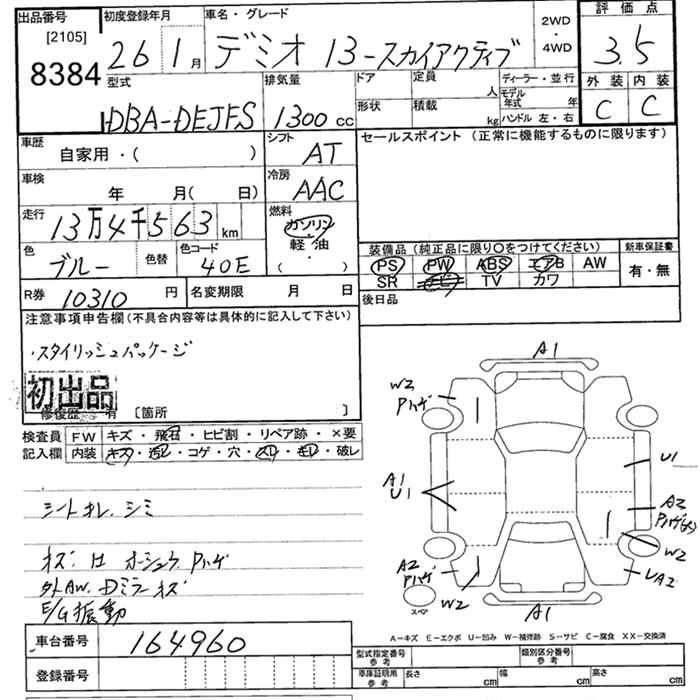 出品番号
[2105]
8384
初度登録年月
26 1月
車名・グレード
デミオ 13-スカイアクティブ
2WD
・
4WD
評価点
3.5
外装 内装
C C
型式
DBA-DEJFS
排気量
1300 cc
ドア
定員
人
形状
積載
kg
ディーラー・並行
モデル年式 年
ハンドル 左・右
車歴
自家用・( )
シフト
AT
セールスポイント(正常に機能するものに限ります)
車検
年 月( 日)
冷房
AAC
走行
13万4千563 km
燃料
ガソリン
軽油
( )
色
ブルー
色替
色コード
40E
装備品(純正品に限り○をつけてください)
PS PW ABS エアB AW
SR ナビ TV カワ
新車保証書
有・無
R券 10310 円
名変期限 月 日
後日品
注意事項申告欄(不具合内容等は具体的に記入して下さい)
・スタイリッシュパッケージ
初出品
修復歴 有 [箇所 ]
検査員 FW キズ・飛石・ヒビ割・リペア跡・×要
記入欄 内装 キズ・汚レ・コゲ・穴・スレ・キレ・破レ
シートオレ.シミ
外AW.Dミラーキズ
E/G振動
A1
W2
Pハゲ
A1
U1
U1
A2
Pハゲ(大)
W2
A2
Pハゲ
W2
UA2
A1
スペア
A-キズ E-エクボ U-凹み W-補修跡 S-サビ C-腐食 XX-交換済
車台番号 164960
登録番号
型式指定番号
参考
類別区分番号
参考
車庫証明用
参考
長さ cm
幅 cm
高さ cm